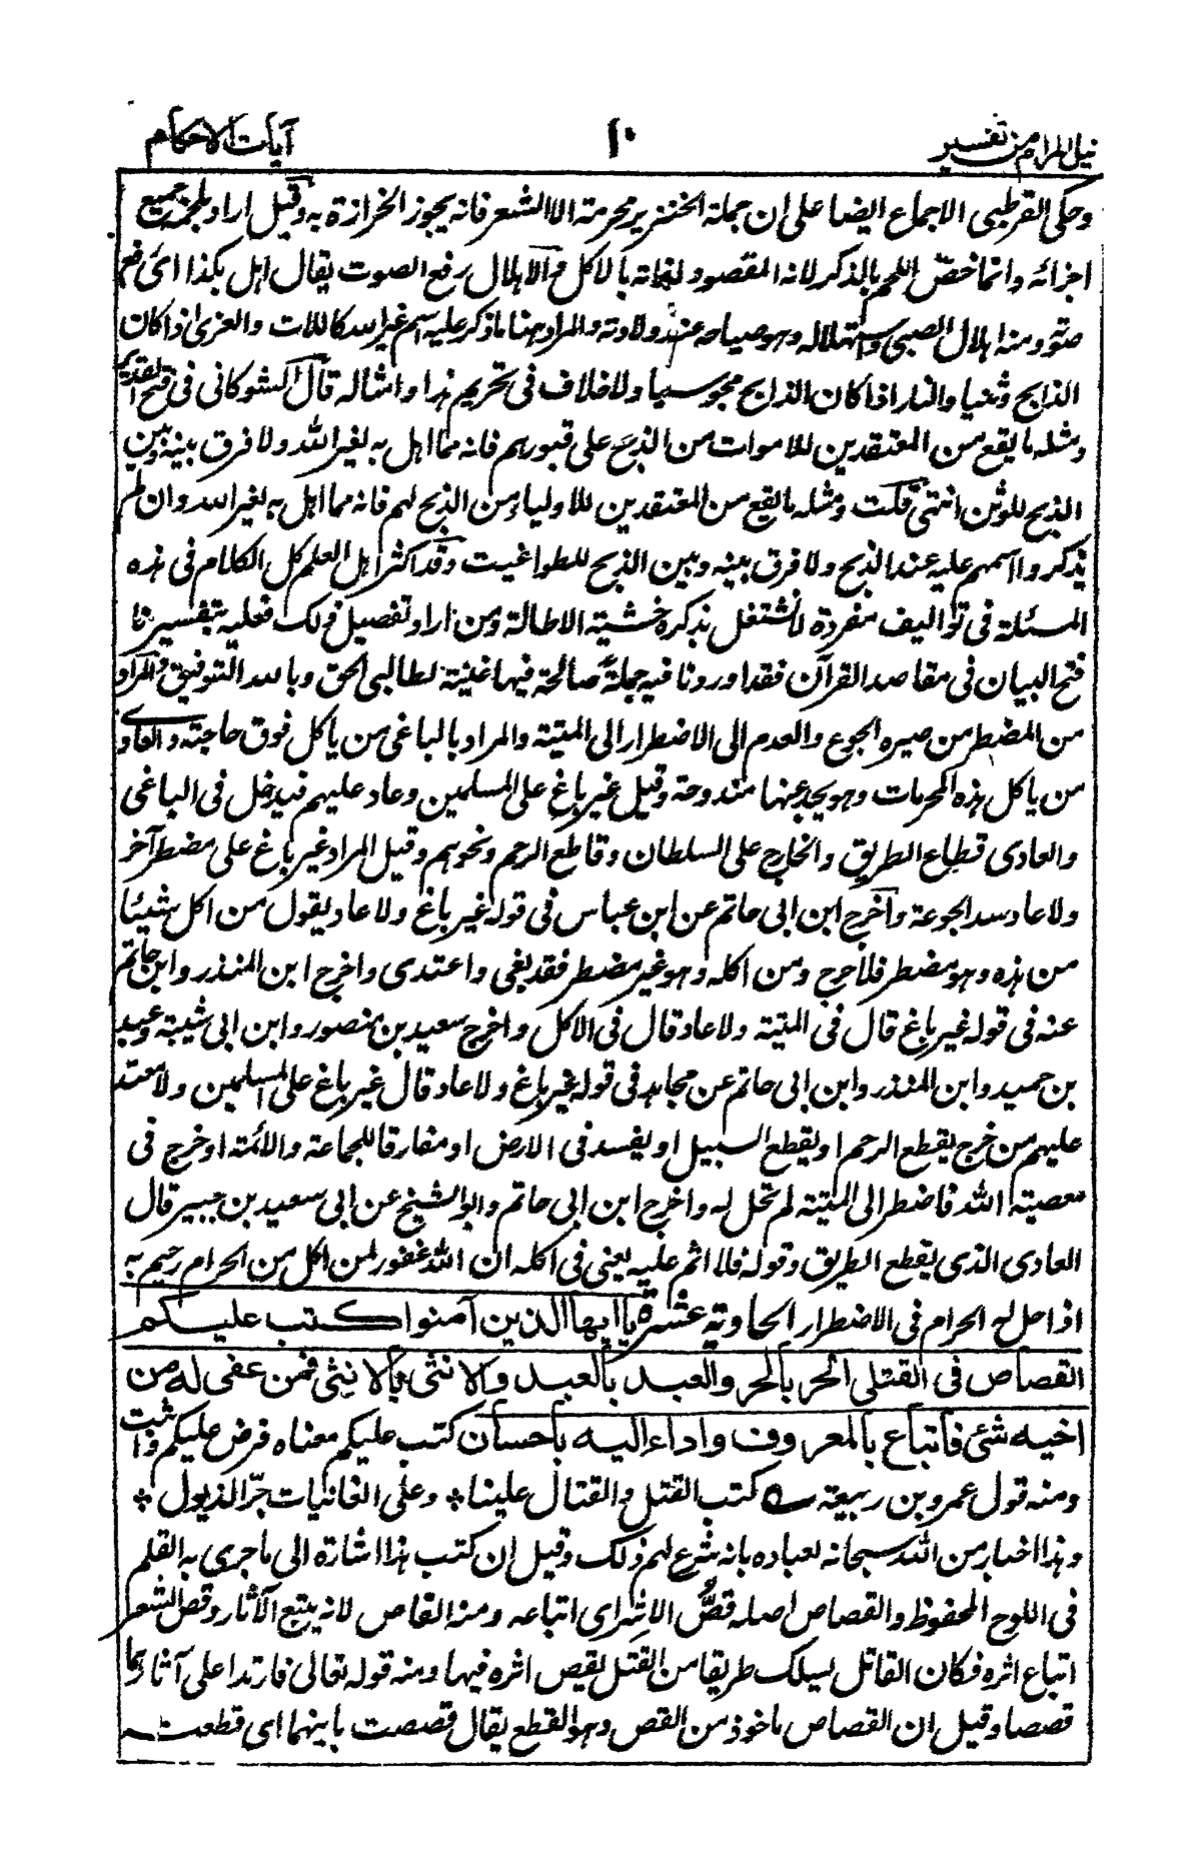 نيل المرام من تفسير ١٠ آيات الاحكام
وحكى القرطبى الاجماع ايضا على ان جملة الخنزير محرمة الا الشعر فانه يجوز الخرازة به وقيل اراد بلحمه جميع
اجزائه وانما خص اللحم بالذكر لانه المقصود لذاته بالاكل والاهلال رفع الصوت يقال اهل بكذا اى رفع
صوته ومنه اهلال الصبى واستهلاله وهو صياحه عند ولادته والمراد هنا ما ذكر عليه اسم غير الله كاللات والعزى اذا كان
الذابح وثنيا والنار اذا كان الذابح مجوسيا ولا خلاف فى تحريم هذا وامثاله قال الشوكانى فى فتح القدير
ومثله ما يقع من المعتقدين للاموات من الذبح على قبورهم فانه مما اهل به لغير الله ولا فرق بينه وبين
الذبح للوثن انتهى قلت ومثله ما يقع من المعتقدين للاولياء من الذبح لهم فانه مما اهل به لغير الله وان لم
يذكروا اسمهم عليه عند الذبح ولا فرق بينه وبين الذبح للطواغيت وقد اكثر اهل العلم كل الكلام فى هذه
المسئلة فى تواليف مفردة لا نشتغل بذكره خشية الاطالة ومن اراد تفصيل ذلك فعليه بتفسيرنا
فتح البيان فى مقاصد القرآن فقد اوردنا فيه جملة صالحة فيها غنية لطالبى الحق وبالله التوفيق والمراد
من المضطر من صيره الجوع والعدم الى الاضطرار الى الميتة والمراد بالباغى من ياكل فوق حاجته والعادى
من ياكل هذه المحرمات وهو يجد عنها مندوحة وقيل غير باغ على المسلمين وعاد عليهم فيدخل فى الباغى
والعادى قطاع الطريق والخارج على السلطان وقاطع الرحم ونحوهم وقيل المراد غير باغ على مضطر آخر
ولا عاد سد الجوعة واخرج ابن ابى حاتم عن ابن عباس فى قوله غير باغ ولا عاد يقول من اكل شيئا
من هذه وهو مضطر فلا حرج ومن اكله وهو غير مضطر فقد بغى واعتدى واخرج ابن المنذر وابن حاتم
عنه فى قوله غير باغ قال فى الميتة ولا عاد قال فى الاكل واخرج سعيد بن منصور وابن ابى شيبة وعبد
بن حميد وابن المنذر وابن ابى حاتم عن مجاهد فى قوله غير باغ ولا عاد قال غير باغ على المسلمين ولا معتد
عليهم من خرج يقطع الرحم او يقطع السبيل او يفسد فى الارض او مفارقا للجماعة والائمة او خرج فى
معصية الله فاضطر الى الميتة لم تحل له واخرج ابن ابى حاتم وابو الشيخ عن ابى سعيد بن جبير قال
العادى الذى يقطع الطريق وقوله فلا اثم عليه يعنى فى اكله ان الله غفور لمن اكل من الحرام رحيم به
اذا احل له الحرام فى الاضطرار الحاوية عشرة يا ايها الذين آمنوا كتب عليكم
القصاص فى القتلى الحر بالحر والعبد بالعبد والانثى بالانثى فمن عفى له من
اخيه شئ فاتباع بالمعروف واداء اليه باحسان كتب عليكم معناه فرض عليكم واثبت
ومنه قول عمرو بن ربيعة ؎ كتب القتل والقتال علينا * وعلى الغانيات جر الذيول *
وهذا اخبار من الله سبحانه لعباده بانه شرع لهم ذلك وقيل ان كتب هذا اشارة الى ما جرى به القلم
فى اللوح المحفوظ والقصاص اصله قص الاثر اى اتباعه ومنه القاص لانه يتبع الآثار وقص الشعر
اتباع اثره فكان القاتل يسلك طريقا من القتل يقص اثره فيها ومنه قوله تعالى فارتدا على آثارهما
قصصا وقيل ان القصاص ماخوذ من القص وهو القطع يقال قصصت ما بينهما اى قطعت